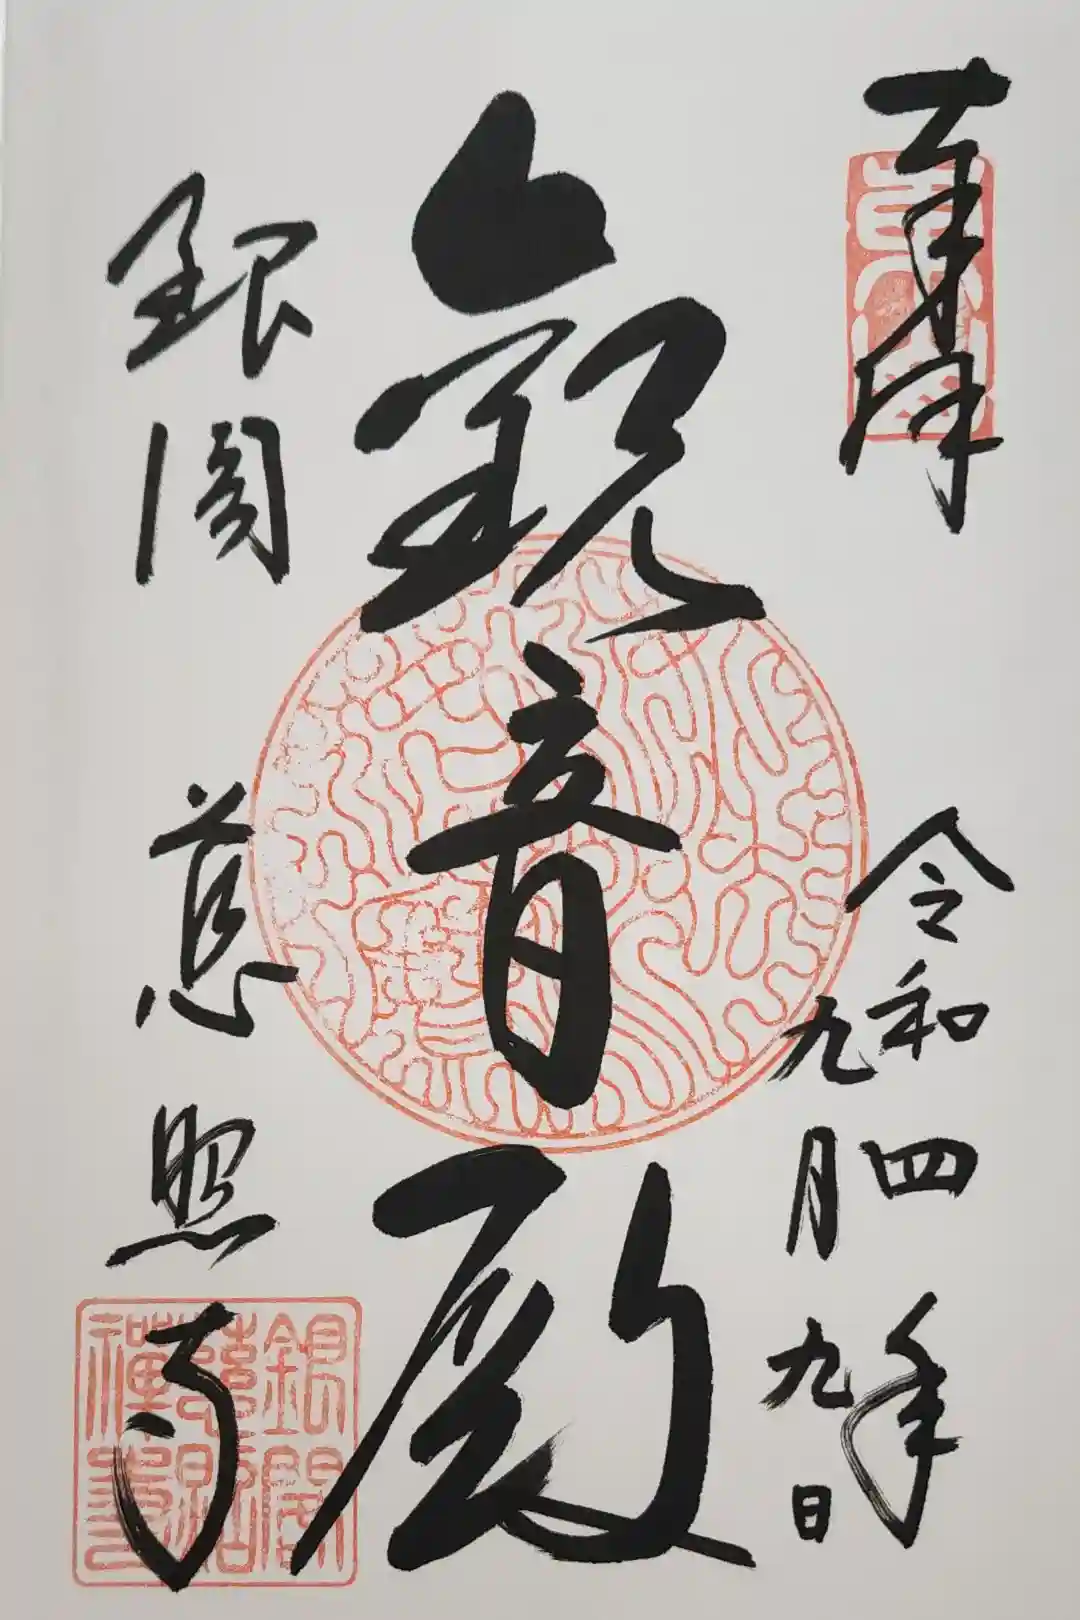 奉拝
令和四年
九月九日
観音殿
銀閣 慈照寺
銀閣
慈照
禅寺